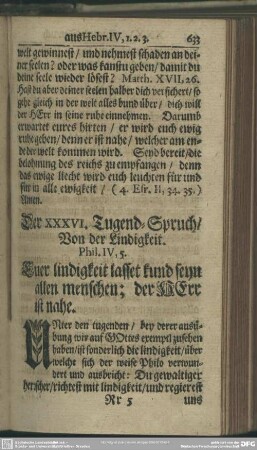 aus Hebr. IV, 1. 2. 3. 633
welt gewinnest / und nehmest schaden an dei-
ner seelen? oder was kanstu geben / damit du
deine seele wieder lösest? Matth. XVII, 26.
Hast du aber deiner seelen halber dich versichert / so
gehe gleich in der welt alles bund über / dich will
der HErr in seine ruhe einnehmen. Darumb
erwartet eures hirten / er wird euch ewig
ruhe geben / denn er ist nahe / welcher am en-
de der welt kommen wird. Seyd bereit / die
belohnung des reichs zu empfangen / denn
das ewige liecht wird euch leuchten für und
für in alle ewigkeit / (4. Esr. II, 34. 35.)
Amen.
Der XXXVI. Tugend-Spruch /
Von der Lindigkeit.
Phil. IV, 5.
Euer lindigkeit lasset kund seyn
allen menschen; der HErr
ist nahe.
UNter den tugenden / bey derer ausü-
bung wir auf GOttes exempel zusehen
haben / ist sonderlich die lindigkeit / über
welche sich der weise Philo verwun-
dert und ausbricht: Du gewaltiger
herscher / richtest mit lindigkeit / und regierest
Rr 5 uns